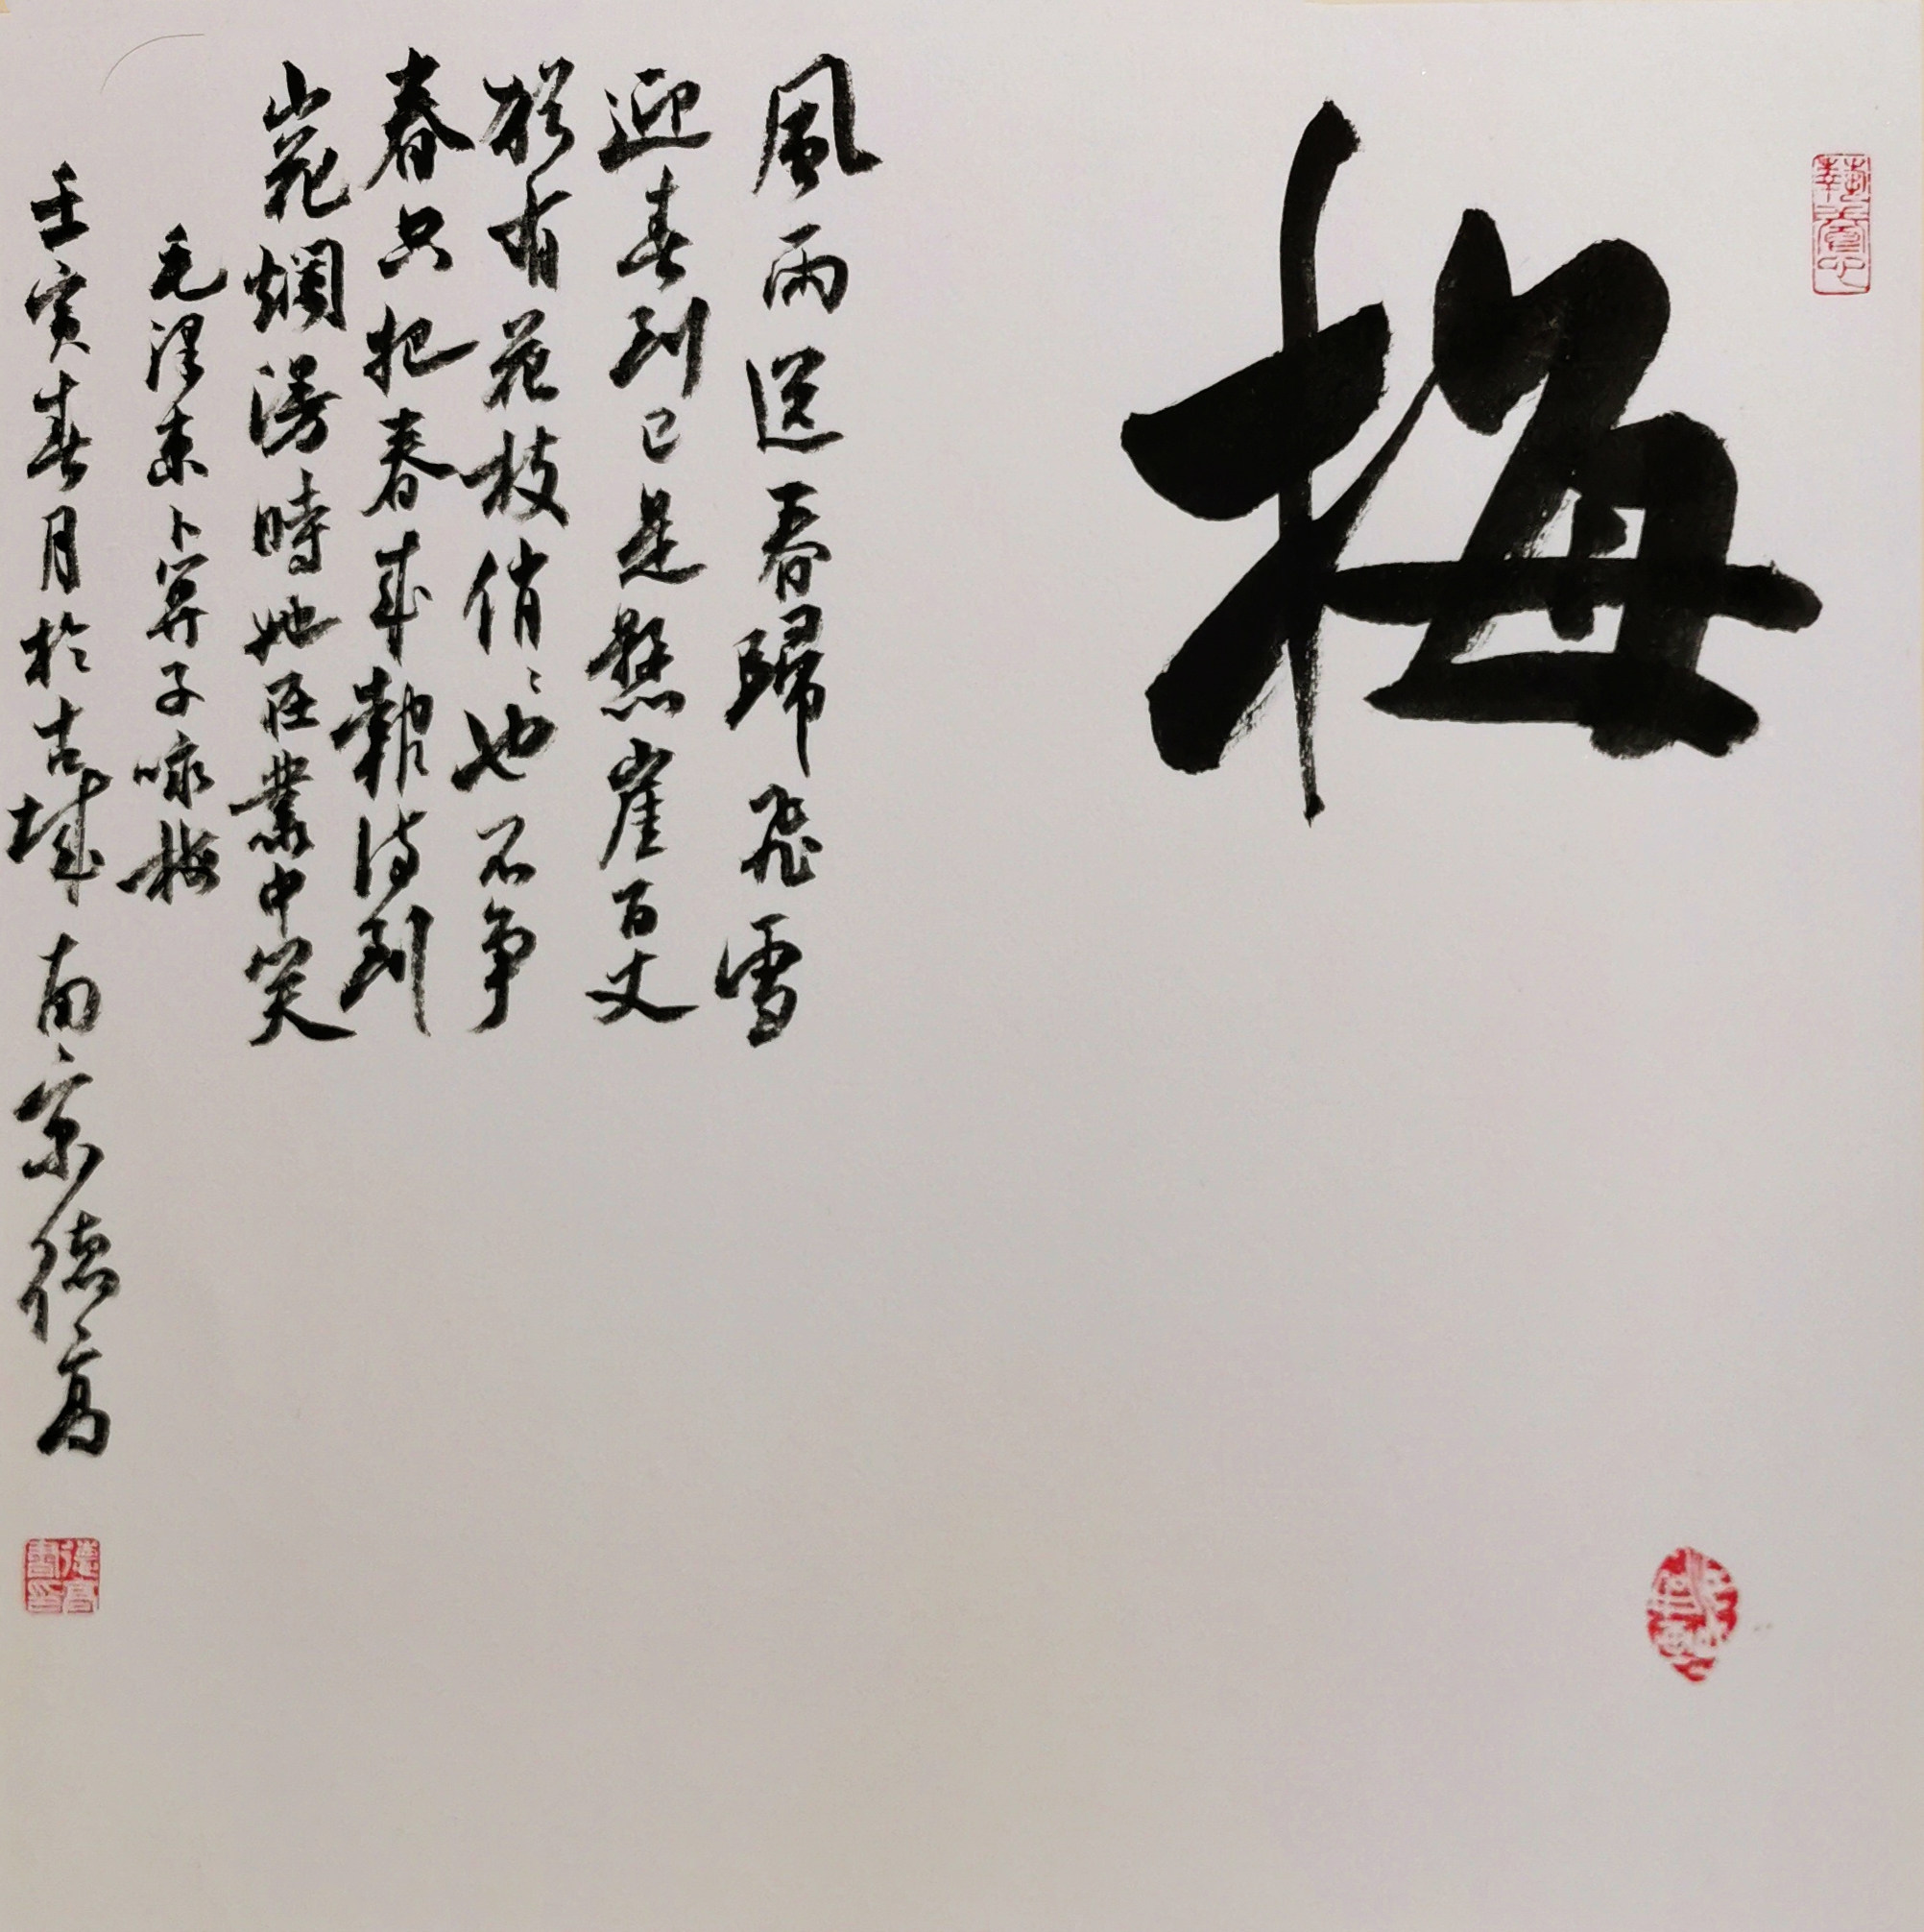 梅
風雨送春歸飛雪
迎春到已是懸崖百丈
猶有花枝俏俏也不爭
春只把春来報待到
山花爛漫時她在叢中笑
毛澤東卜算子咏梅
壬寅春月於古城南京德高
德高書印